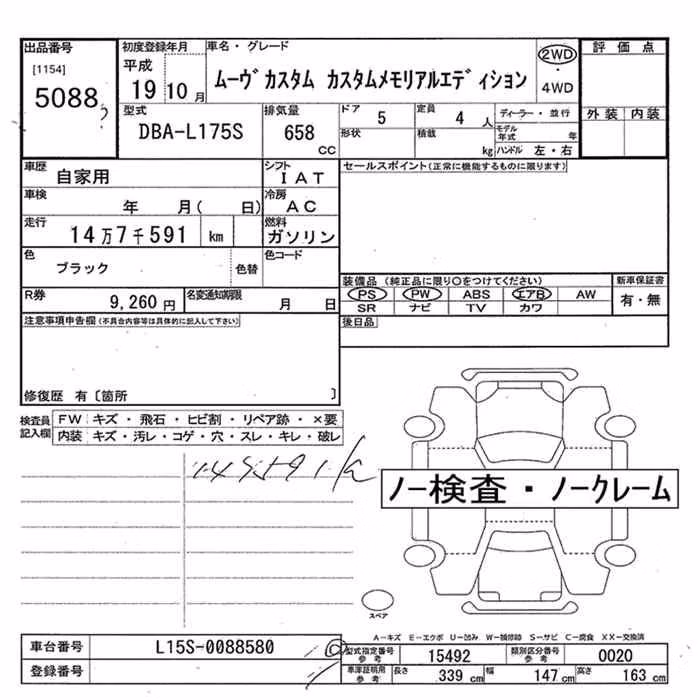 出品番号
[1154]
5088
初度登録年月
平成
19 10 月
車名・グレード
ムーヴカスタム カスタムメモリアルエディション
2WD
・
4WD
評価点
外装 内装
型式
DBA-L175S
排気量
658
CC
ドア
5
定員
4 人
形状
積載
kg
ディーラー・並行
モデル年式 年
ハンドル 左・右
車歴
自家用
シフト
IAT
車検
年 月( 日)
冷房
AC
走行
14万7千591 km
燃料
ガソリン
色
ブラック
色替
色コード
R券
9,260 円
名変通知期限
月 日
セールスポイント(正常に機能するものに限ります)
装備品 (純正品に限り○をつけてください)
PS PW ABS エアB AW
SR ナビ TV カワ
新車保証書
有・無
後日品
注意事項申告欄(不具合内容等は具体的に記入して下さい)
修復歴 有〔箇所 〕
検査員
記入欄
FW キズ・飛石・ヒビ割・リペア跡・×要
内装 キズ・汚レ・コゲ・穴・スレ・キレ・破レ
ノー検査・ノークレーム
スペア
A-キズ E-エクボ U-凹み W-補修跡 S-サビ C-腐食 XX-交換済
車台番号
L15S-0088580
登録番号
型式指定番号
参考
15492
類別区分番号
参考
0020
車庫証明用
参考
長さ 339 cm
幅 147 cm
高さ 163 cm